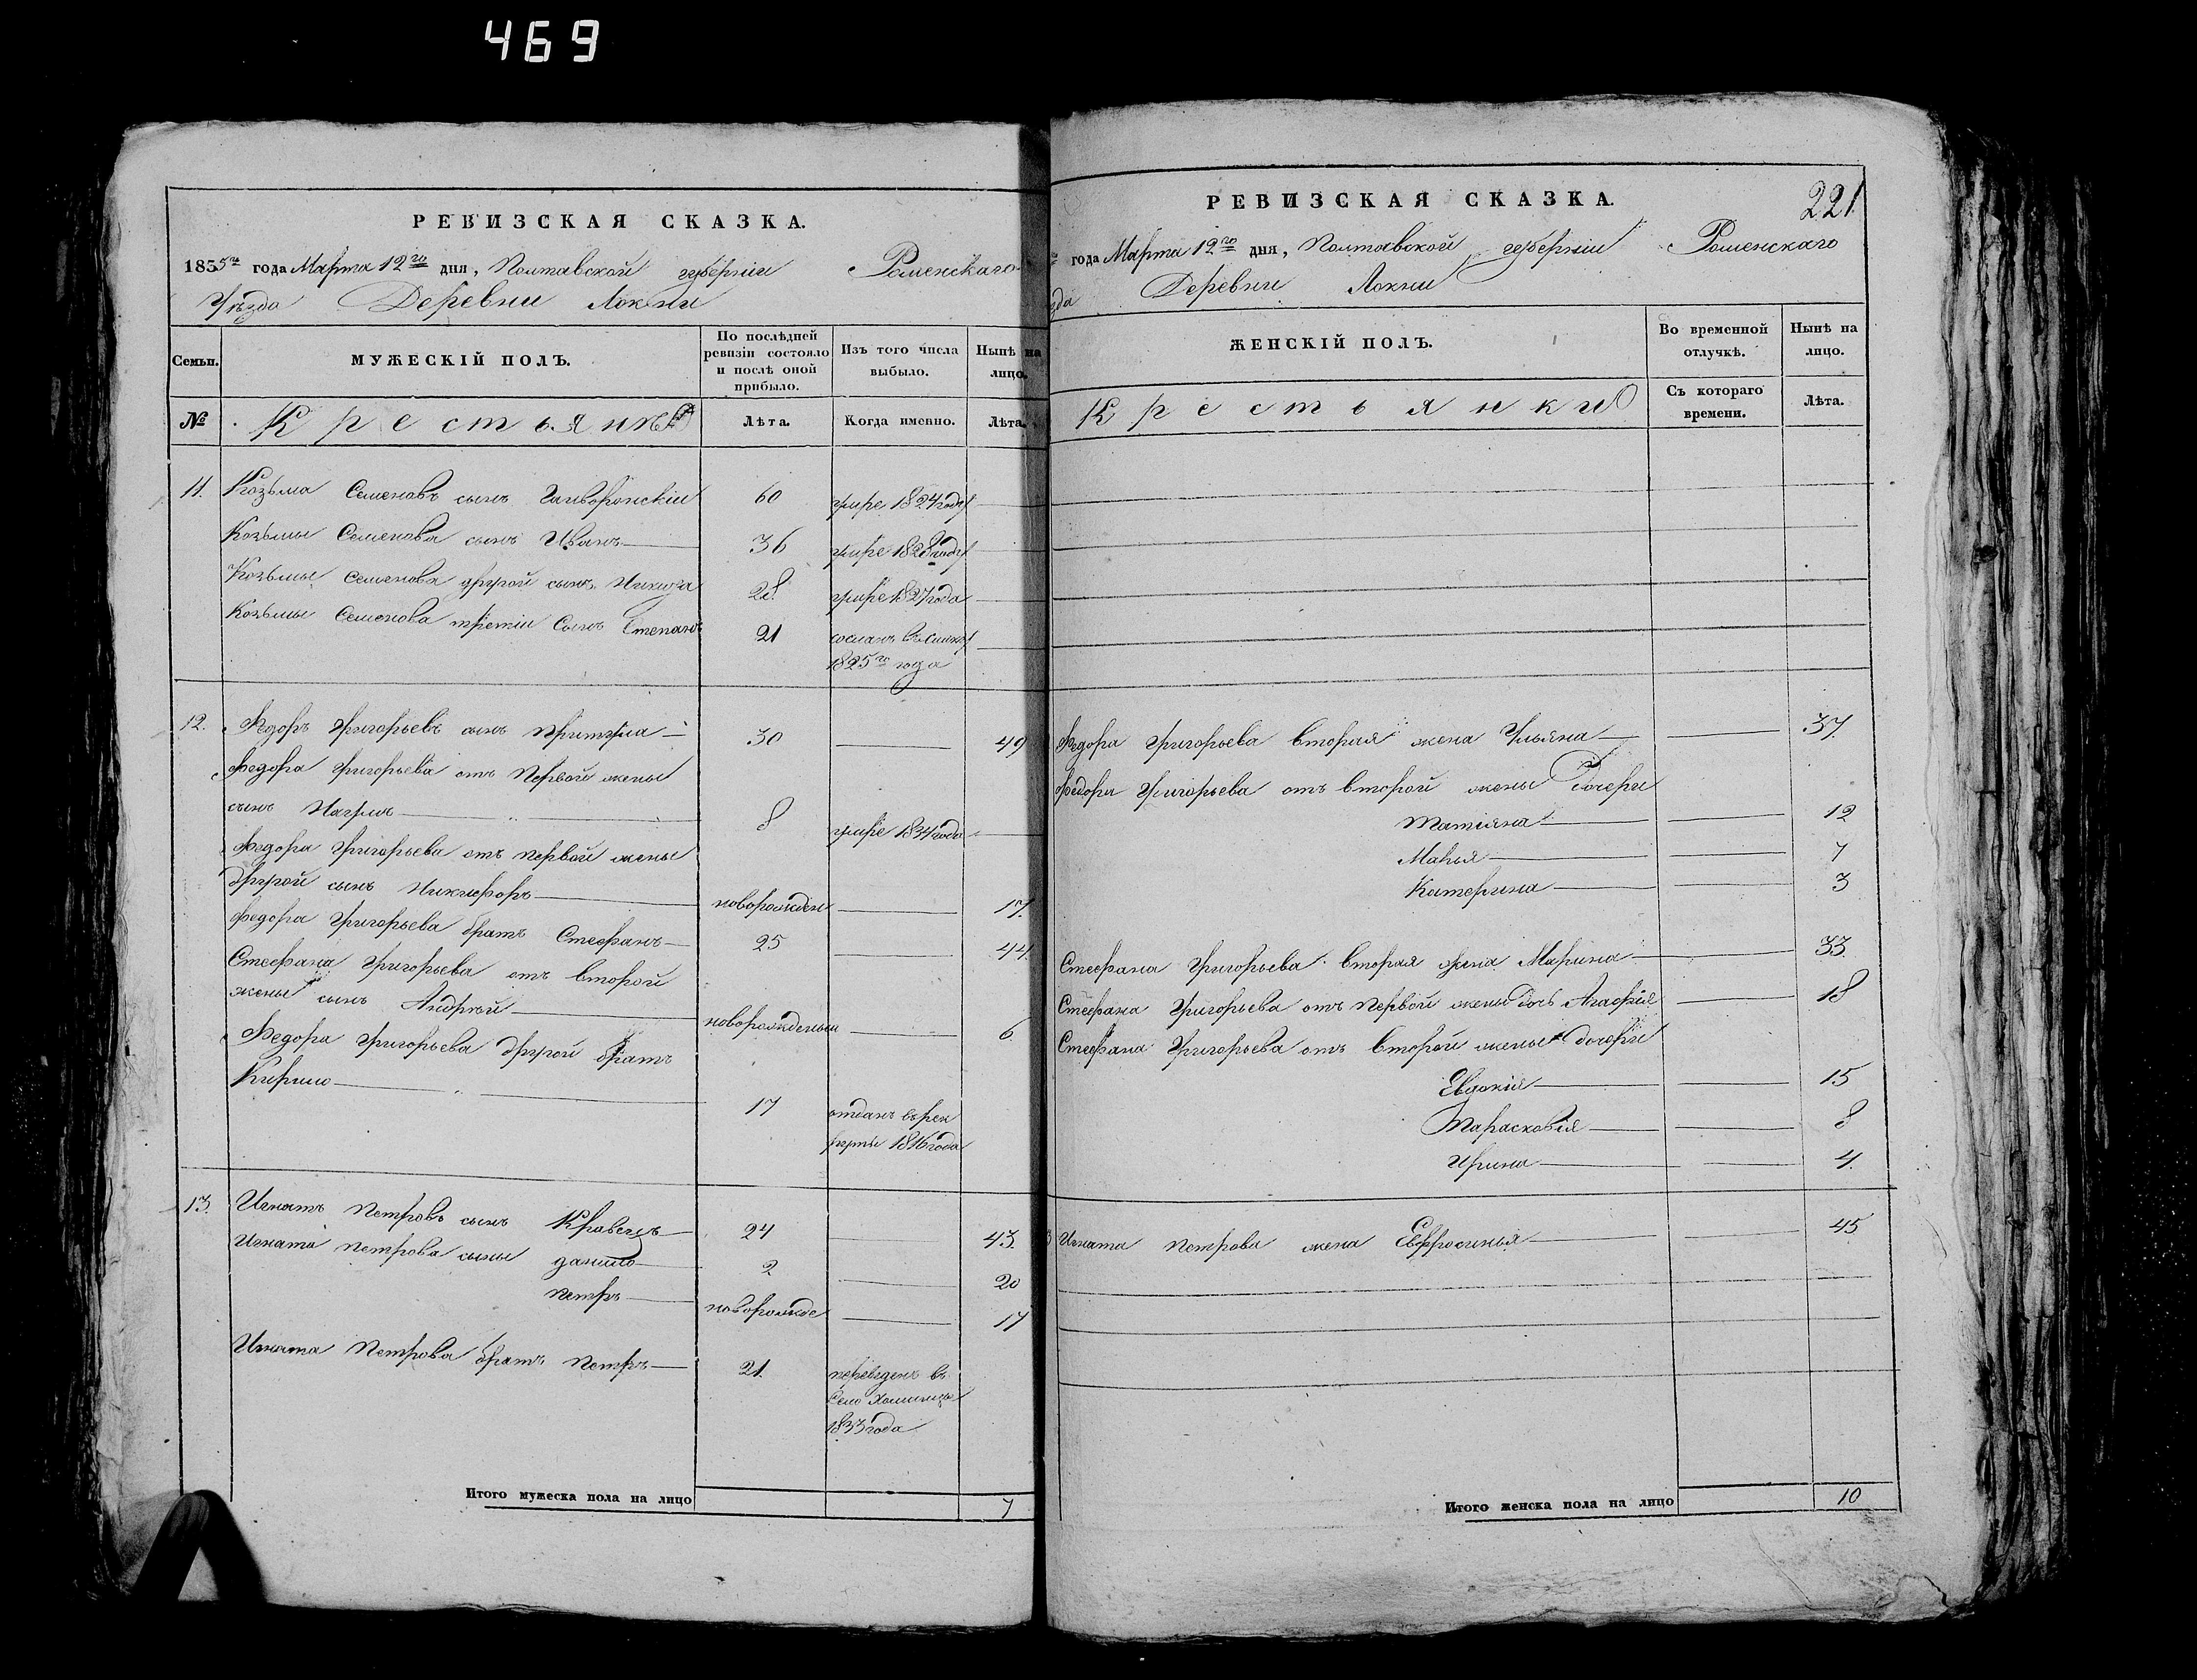 469
РЕВИЗСКАЯ СКАЗКА.
1835го года Марта 12го дня, Полтавской губернии Роменскаго
Уѣзда Деревни Локни
Семьи.
МУЖЕСКІЙ ПОЛЪ.
По послѣдней ревизіи состояло и послѣ оной прибыло.
Изъ того числа выбыло.
Нынѣ на лицо.
№
Крестьянѣ
Лѣта.
Когда именно.
Лѣта.
11. Козьма Семеновъ сынъ Гайворонскій 60 умре 1824 году
Козьмы Семенова сынъ Иванъ 36 умре 1828 году
Козьмы Семенова другой сынъ Никита 28 умре 1827 года
Козьмы Семенова третій Сынъ Степанъ 21 сосланъ
1825го года
12. Федоръ Григорьевъ сынъ Притула 30 49
Федора Григорьева отъ Первой жены
сынъ Наумъ 8 умре 1834 года
Федора Григорьева отъ первой жены
другой сынъ Никифоръ новорожден 17
Федора Григорьева братъ Стефанъ 25 44
Стефана Григорьева отъ второй
жены сынъ Андрѣй новорожденый 6
Федора Григорьева другой братъ
Кирило 17 отданъ въ рек
руты 1816 года
13. Игнатъ Петровъ сынъ Кравецъ 24 43
Игната Петрова сыны данило 2 20
Петръ новорожде 17
Игната Петрова братъ Петръ 21 переведенъ в
Село
1833 года
Итого мужеска пола на лицо 7
РЕВИЗСКАЯ СКАЗКА.
221
года Марта 12го дня, Полтавской губерніи Роменскаго
зда Деревни Локни
ЖЕНСКІЙ ПОЛЪ.
Во временной отлучкѣ.
Нынѣ на лицо.
Крестьянки
Съ котораго времени.
Лѣта.
Федора Григорьева вторая жена Ульяна 37
Федора Григорьева отъ второй жены Дочери
Татіяна 12
Марья 7
Катерина 3
Стефана Григорьева вторая жена Марина 33
Стефана Григорьева отъ первой жены дочь Агафія 18
Стефана Григорьева отъ второй жены дочери
Евдокія 15
Парасковія 8
Ирина 4
Игната Петрова жена Евфросинья 45
Итого женска пола на лицо 10